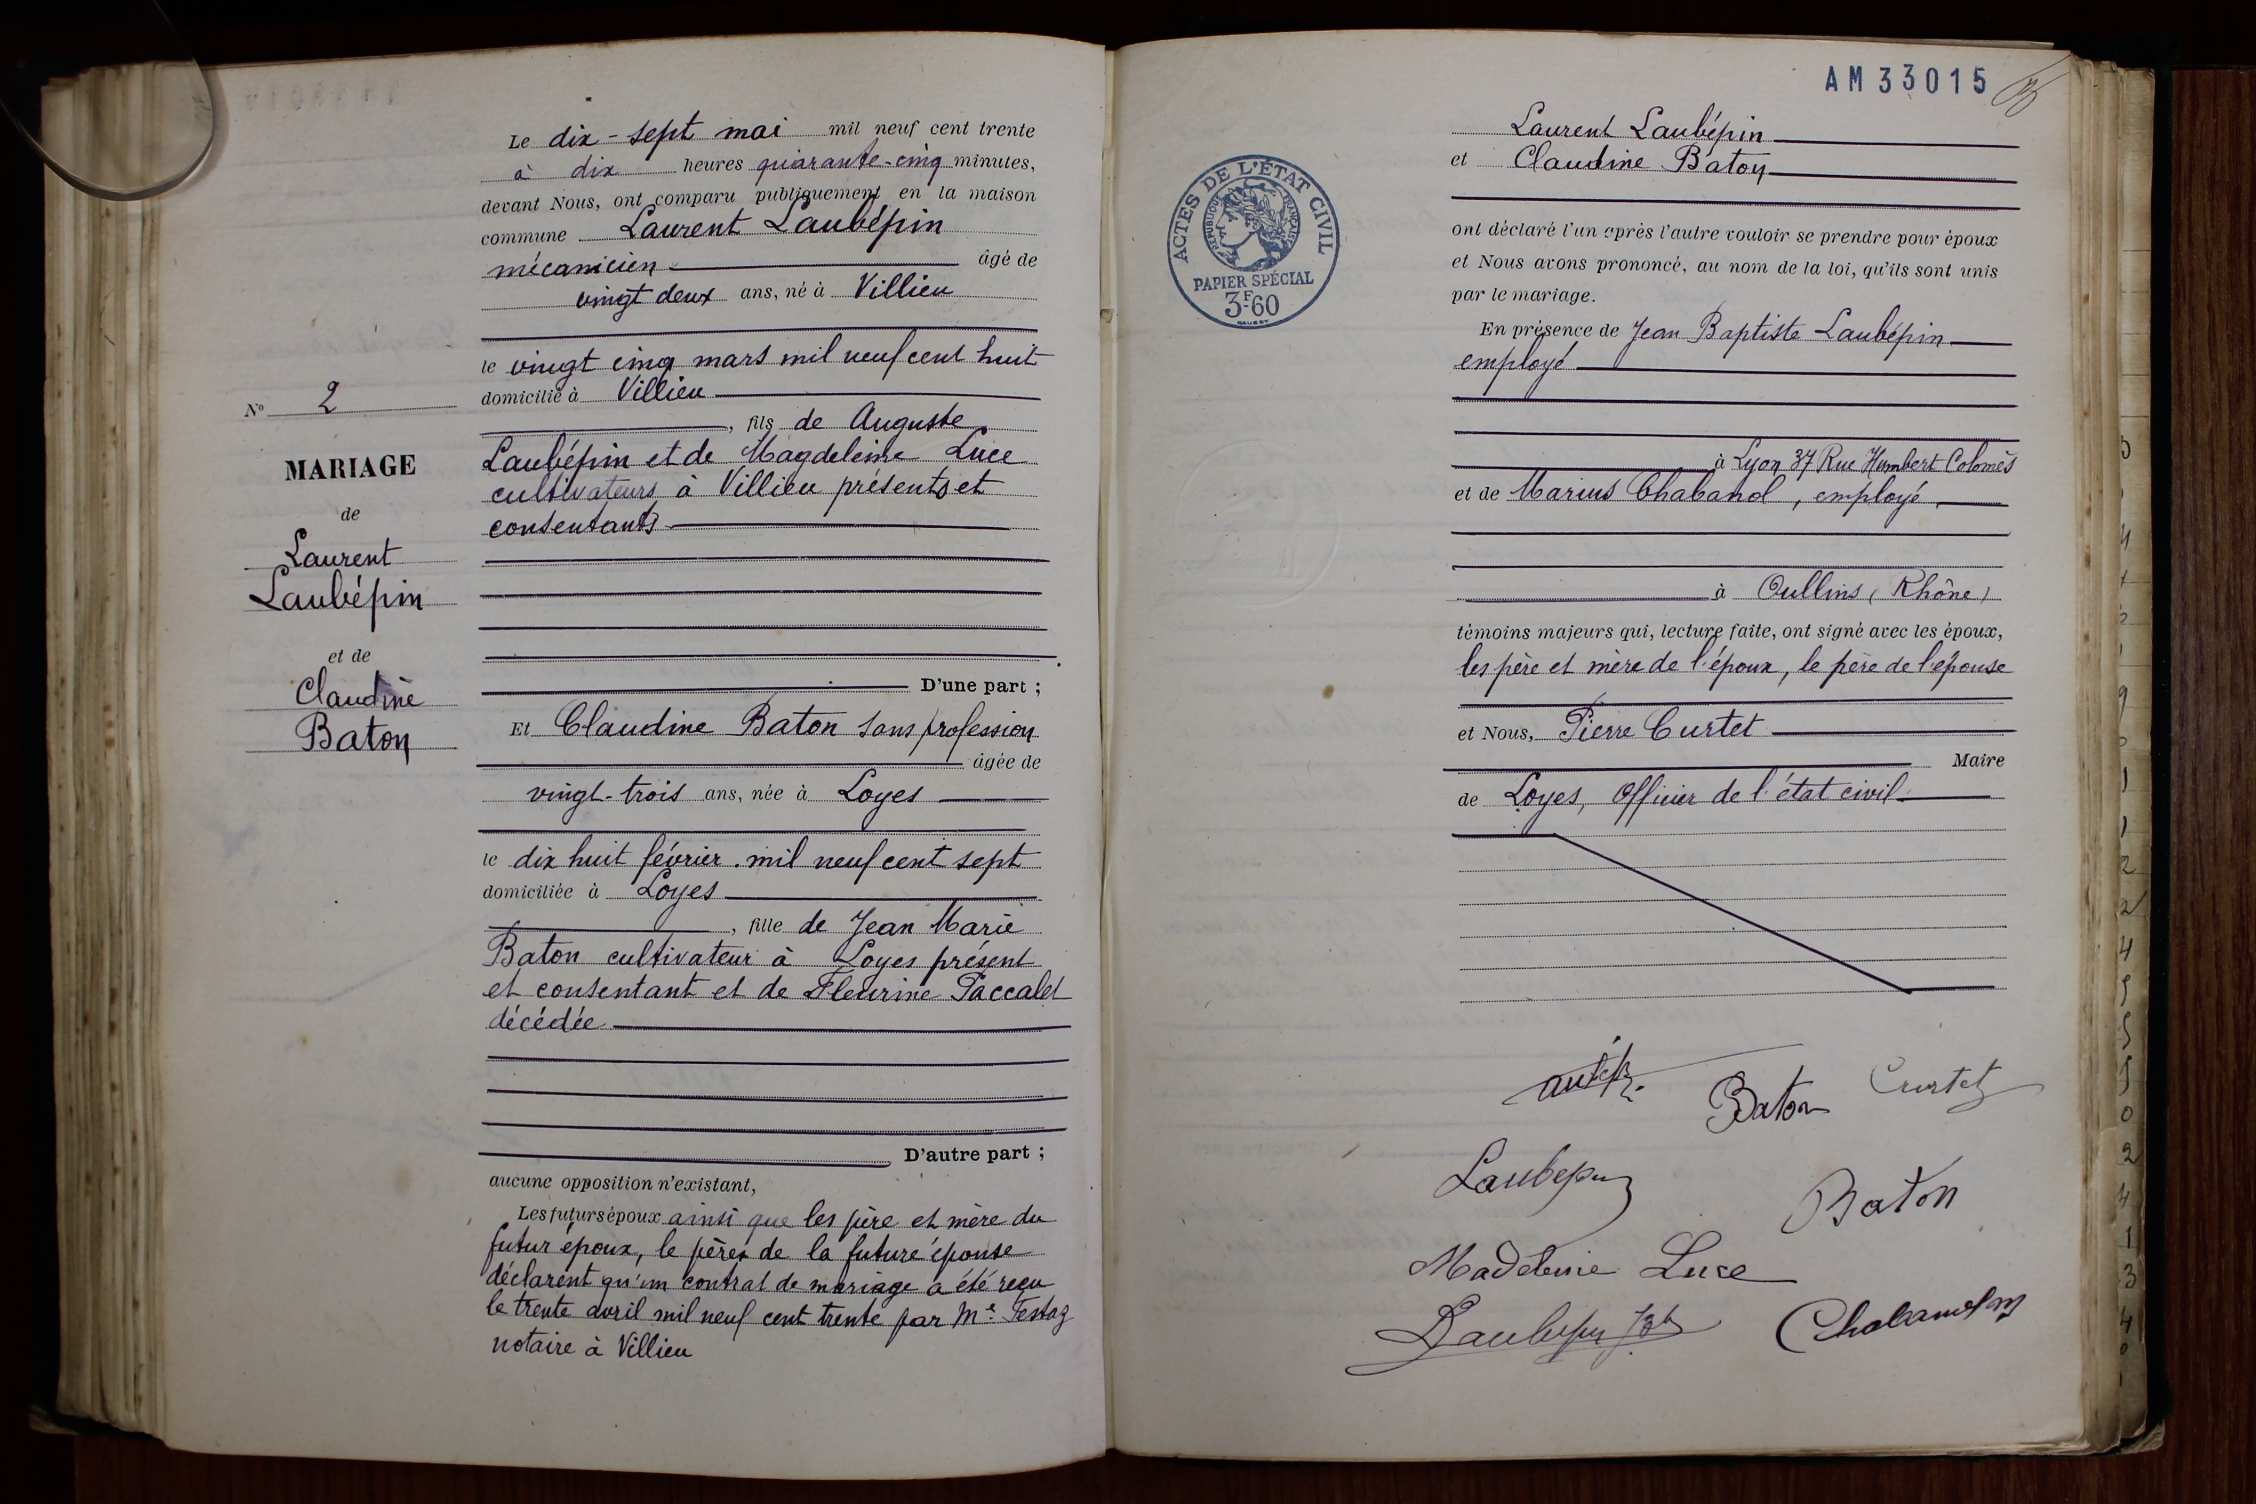 Le dix-sept mai mil neuf cent trente
à dix heures quarante-cinq minutes,
devant Nous, ont comparu publiquement en la maison
commune Laurent Laubépin
mécanicien âgé de
vingt deux ans, né à Villieu
le vingt cinq mars mil neuf cent huit
domicilié à Villieu
, fils de Auguste
Laubépin et de Magdeleine Luce
cultivateurs à Villieu présents et
consentants
D'une part ;
Et Claudine Baton sans profession
âgée de
vingt-trois ans, née à Loyes
le dix huit février mil neuf cent sept
domiciliée à Loyes
, fille de Jean Marie
Baton cultivateur à Loyes présent
et consentant et de Fleurine Paccalet
décédée
D'autre part ;
aucune opposition n'existant,
Les futurs époux ainsi que les père et mère du
futur époux, le père de la future épouse
déclarent qu'un contrat de mariage a été reçu
le trente avril mil neuf cent trente par Me Testaz
notaire à Villieu
No 2
MARIAGE
de
Laurent
Laubépin
et de
Claudine
Baton
AM33015
ACTES DE L'ÉTAT CIVIL
RÉPUBLIQUE FRANÇAISE
PAPIER SPÉCIAL
3F60
Laurent Laubépin
et Claudine Baton
ont déclaré l'un après l'autre vouloir se prendre pour époux
et Nous avons prononcé, au nom de la loi, qu'ils sont unis
par le mariage.
En présence de Jean Baptiste Laubépin
employé
à Lyon 37 Rue Humbert Colomès
et de Marius Chabanol, employé,
à Oullins (Rhône)
témoins majeurs qui, lecture faite, ont signé avec les époux,
les père et mère de l'époux, le père de l'épouse
et Nous, Pierre Curtet
Maire
de Loyes, Officier de l'état civil
Baton Curtet
Laubepin
Baton
Madeleine Luce
Laubepin Jb
Chabanol m